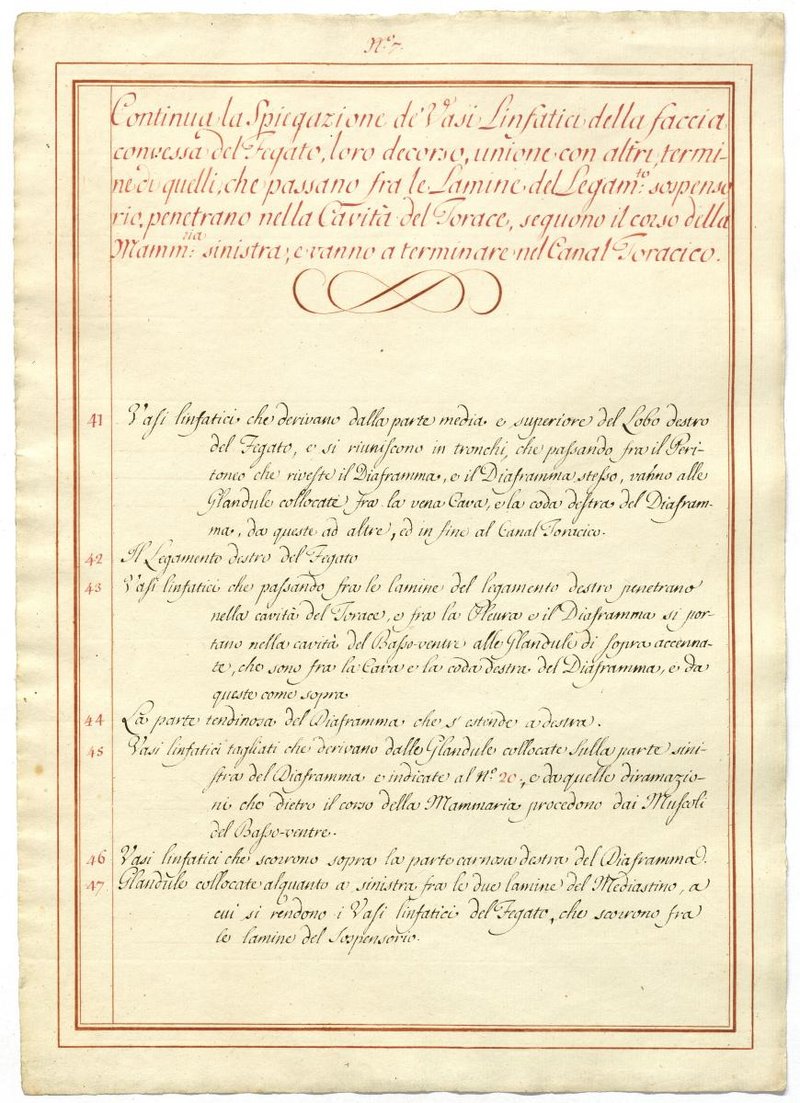 N.º 7.
Continua la Spiegazione de' Vasi Linfatici della faccia
convessa del Fegato, loro decorso, unione con altri, termi-
ne di quelli, che passano fra le Lamine del Legam:to sospenso
rio, penetrano nella Cavità del Torace, seguono il corso della
Mamm:ria sinistra, e vanno a terminare nel Canal Toracico.
41 Vasi linfatici che derivano dalla parte media e superiore del Lobo destro
del Fegato, e si riuniscono in tronchi, che passando fra il Peri-
toneo che riveste il Diaframma, e il Diaframma stesso, vanno alle
Glandule collocate fra la vena Cava, e la coda destra del Diafram-
ma, da queste ad altre, ed in fine al Canal Toracico.
42 Il Legamento destro del Fegato
43 Vasi linfatici che passando fra le lamine del legamento destro penetrano
nella cavità del Torace, e fra la Pleura e il Diaframma si por-
tano nella cavità del Basso-ventre alle Glandule di sopra accenna-
te, che sono fra la Cava e la coda destra del Diaframma, e da
queste come sopra
44 La parte tendinosa del Diaframma che s' estende a destra.
45 Vasi linfatici tagliati che derivano dalle Glandule collocate sulla parte sini-
stra del Diaframma e indicate al N.º 20., e da quelle diramazio-
ni che dietro il corso della Mammaria procedono dai Muscoli
del Basso-ventre.
46 Vasi linfatici che scorrono sopra la parte carnosa destra del Diaframma.
47. Glandule collocate alquanto a sinistra fra le due lamine del Mediastino, a
cui si rendono i Vasi linfatici del Fegato, che scorrono fra
le lamine del Sospensorio.